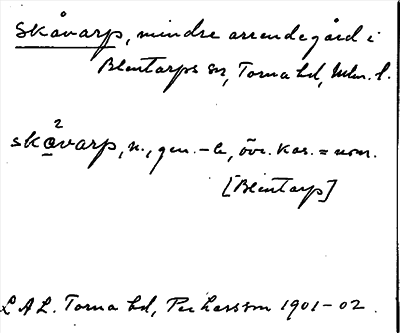 Skåvarp, mindre arrendegård i
Blentarps sn, Torna hd, Mlm. l.
skåvarp, n., gen. – e, övr. kas. = nom.
[Blentarp]
L A L. Torna hd, Per Larsson 1901–02.